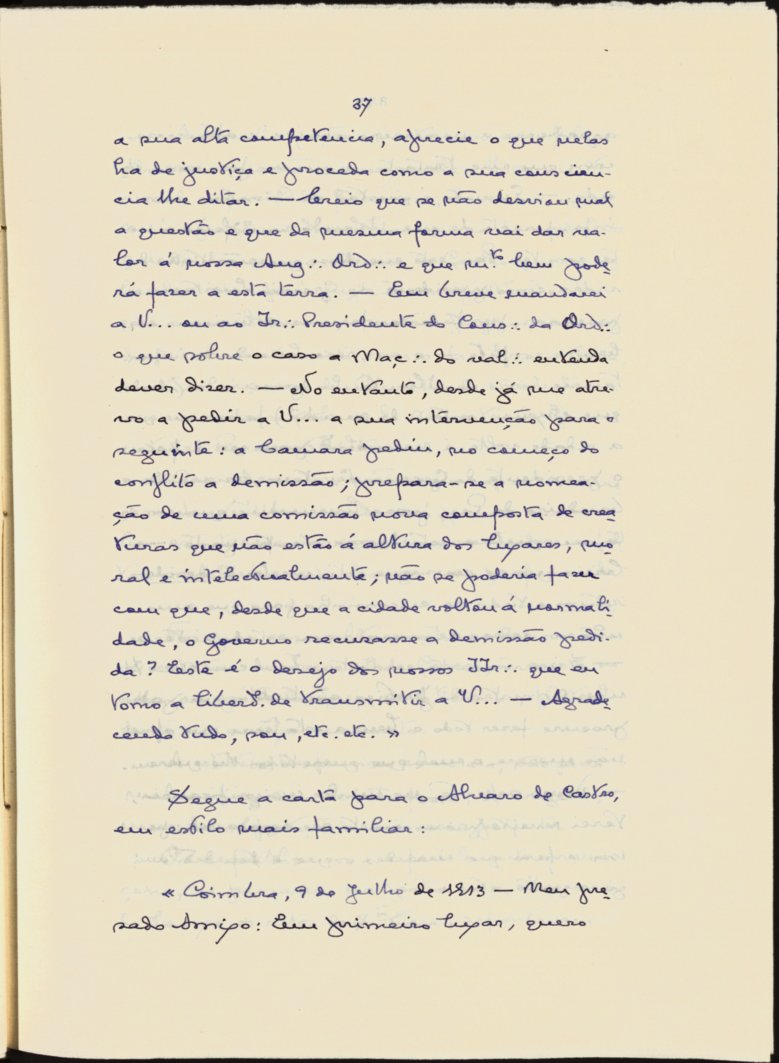 37
a sua alta competencia, aprecie o que nelas
ha de justiça e proceda como a sua conscien-
cia lhe ditar. — Creio que se não desviou mal
a questão e que da mesma forma vai dar va-
lor á nossa Aug∴ Ord∴ e que m.to bem pode-
rá fazer a esta terra. — Em breve mandarei
a V... ou ao Ir∴ Presidente do Cons∴ da Ord∴
o que sobre o caso a Maç∴ do val∴ entenda
dever dizer. — No entanto, desde já me atre-
vo a pedir a V... a sua intervenção para o
seguinte: a Camara pediu, no começo do
conflito a demissão; prepara-se a nomea-
ção de uma comissão nova composta de crea-
turas que não estão á altura dos lugares, mo-
ral e intelectualmente; não se poderia fazer
com que, desde que a cidade voltou á normali-
dade, o Governo recusasse a demissão pedi-
da? Este é o desejo dos nossos IIr∴ que eu
tomo a liberd. de transmitir a V... — Agrade-
cendo tudo, sou, etc. etc. »
Segue a carta para o Alvaro de Castro,
em estilo mais familiar:
« Coimbra, 9 de Julho de 1913 — Meu pre-
sado Amigo: Em primeiro lugar, quero